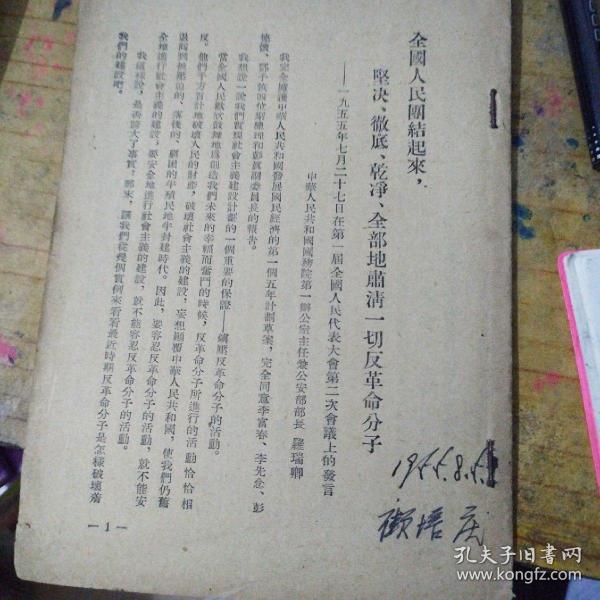 全國人民團結起來，
堅决、徹底、乾凈、全部地肅清一切反革命分子
——一九五五年七月二十七日在第一屆全國人民代表大會第二次會議上的發言
中華人民共和國國務院第一辦公室主任兼公安部部長 羅瑞卿
我完全擁護中華人民共和國發展國民經濟的第一個五年計劃草案，完全同意李富春、李先念、彭
德懷、鄧子恢四位副總理和彭眞副委員長的報告。
我想說一說我們實現社會主義建設計劃的一個重要的保證——鎭壓反革命分子的活動。
當全國人民歡欣鼓舞地爲創造我們未來的幸福而奮鬥的時候，反革命分子所進行的活動恰恰相
反。他們千方百計地破壞人民的財產，破壞社會主義的建設，妄想顚覆中華人民共和國，使我們仍舊
退囘到
落後的、
的半殖民地半封建時代。因此，要容忍反革命分子的活動，就不能安
全地進行社會主義的建設；要安全地進行社會主義的建設，就不能容忍反革命分子的活動。
我這樣說，是否誇大了事實？那末，讓我們從幾個實例來看看最近時期反革命分子是怎樣破壞着
我們的建設吧。
— 1 —
1955.8.5.
顧培
孔夫子旧書网
www.kongfz.com